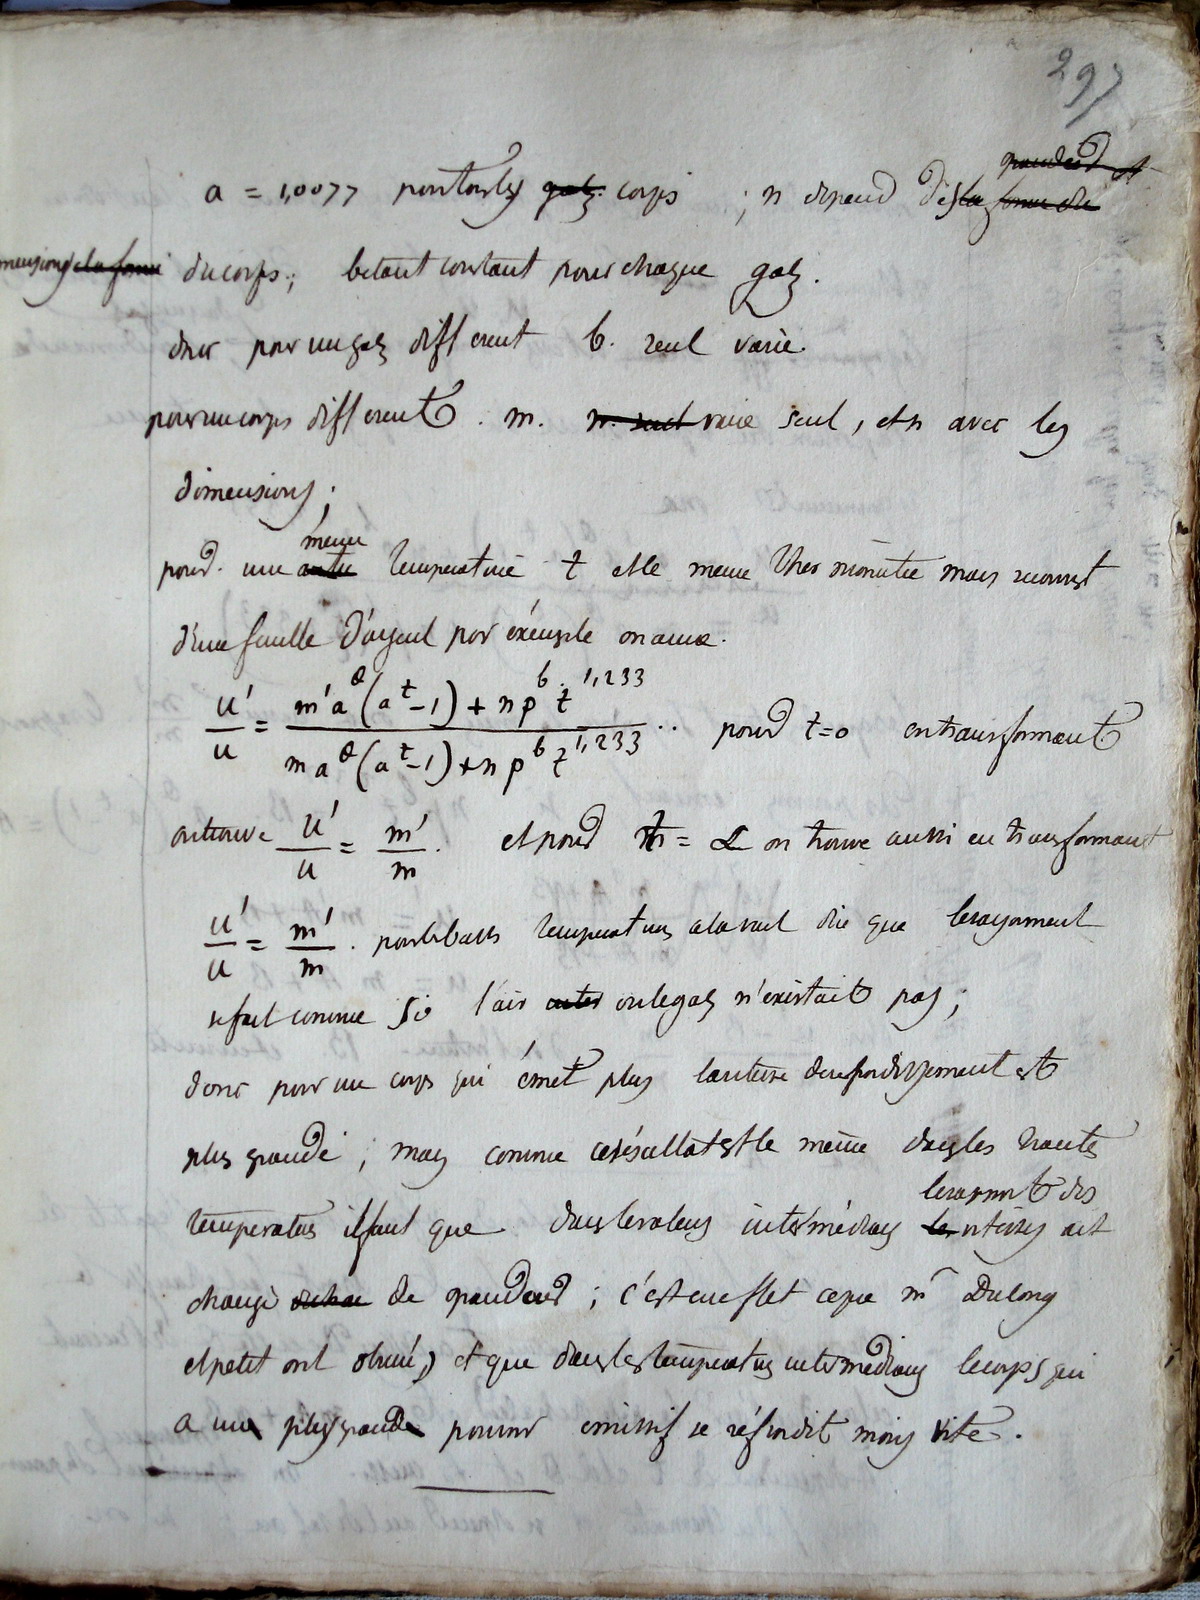 297
grandeur et
a = 1,0077 pour tous les gaz. corps ; n depend des la forme du
mensions et la forme du corps ; b etant constant pour chaque gaz.
donc pour un gaz different b. seul varie.
pour un corps different . m. n. seul varie seul, et n avec les
dimensions ;
meme
pour. une autre temperature t et le meme thermometre mais recouvert
d'une feuille d'argent par éxemple on aura.
u'/u = m'a^θ(a^t-1) + n p^b t^1,233 / m a^θ(a^t-1) + n p^b t^1,233 .. pour t=0 en transformant
on trouve u'/u = m'/m . et pour t = on trouve aussi en transformant
u'/u = m'/m . pour les basses temperatures cela veut dire que le rayonnement
se fait comme si l'air ou le gaz n'existait pas ;
donc pour un corps qui émet plus la vitesse de refroidissement est
plus grande ; mais comme ce résultat est le même dans les hautes
le rapport des
temperatures il faut que dans les valeurs intermédiaires les vitesses ait
changé de grandeur ; c'est en effet ce que mr Dulong
et petit ont observé, et que dans les temperatures intermediaires le corps qui
a un plus grande pouvoir emissif se réfroidit moins vite.